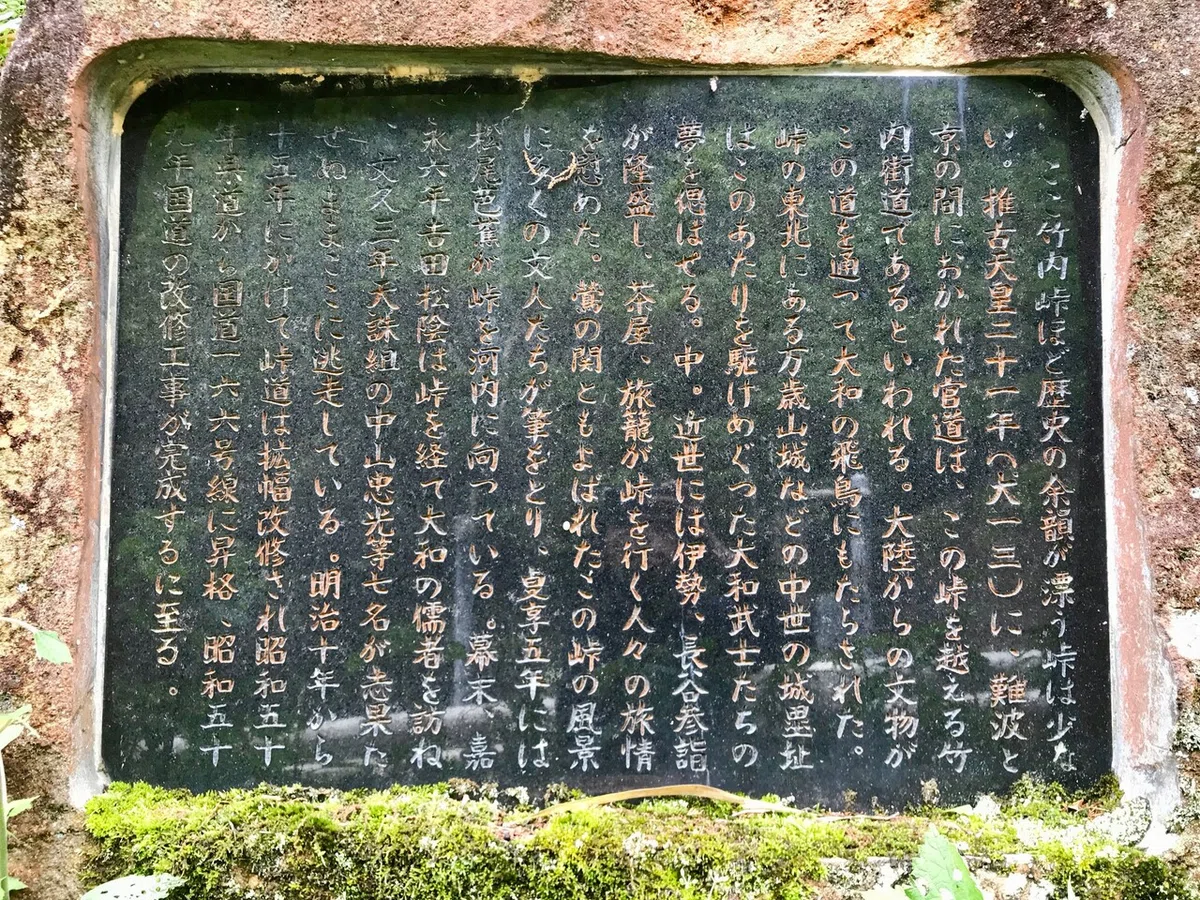 ここ竹内峠ほど歴史の余韻が漂う峠は少な
い。推古天皇二十一年(六一三)に、難波と
京の間におかれた官道は、この峠を越える竹
内街道であるといわれる。大陸からの文物が
この道を通って大和の飛鳥にもたらされた。
峠の東北にある万歳山城などの中世の城塁址
はこのあたりを駆けめぐった大和武士たちの
夢を偲ばせる。中。近世には伊勢、長谷参詣
が隆盛し、茶屋、旅籠が峠を行く人々の旅情
を慰めた。鶯の関ともよばれたこの峠の風景
に多くの文人たちが筆をとり、貞享五年には
松尾芭蕉が峠を河内に向っている。幕末、嘉
永六年吉田松陰は峠を経て大和の儒者を訪ね
、文久三年天誅組の中山忠光等七名が志果た
せぬままここに逃走している。明治十年から
十五年にかけて峠道は拡幅改修され昭和五十
年県道から国道一六六号線に昇格、昭和五十
九年国道の改修工事が完成するに至る。